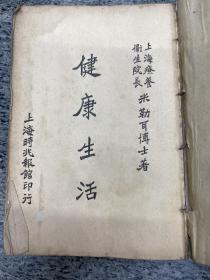 上海療養
衞生院長
米勒耳博士著
健康生活
上海時兆報館印行